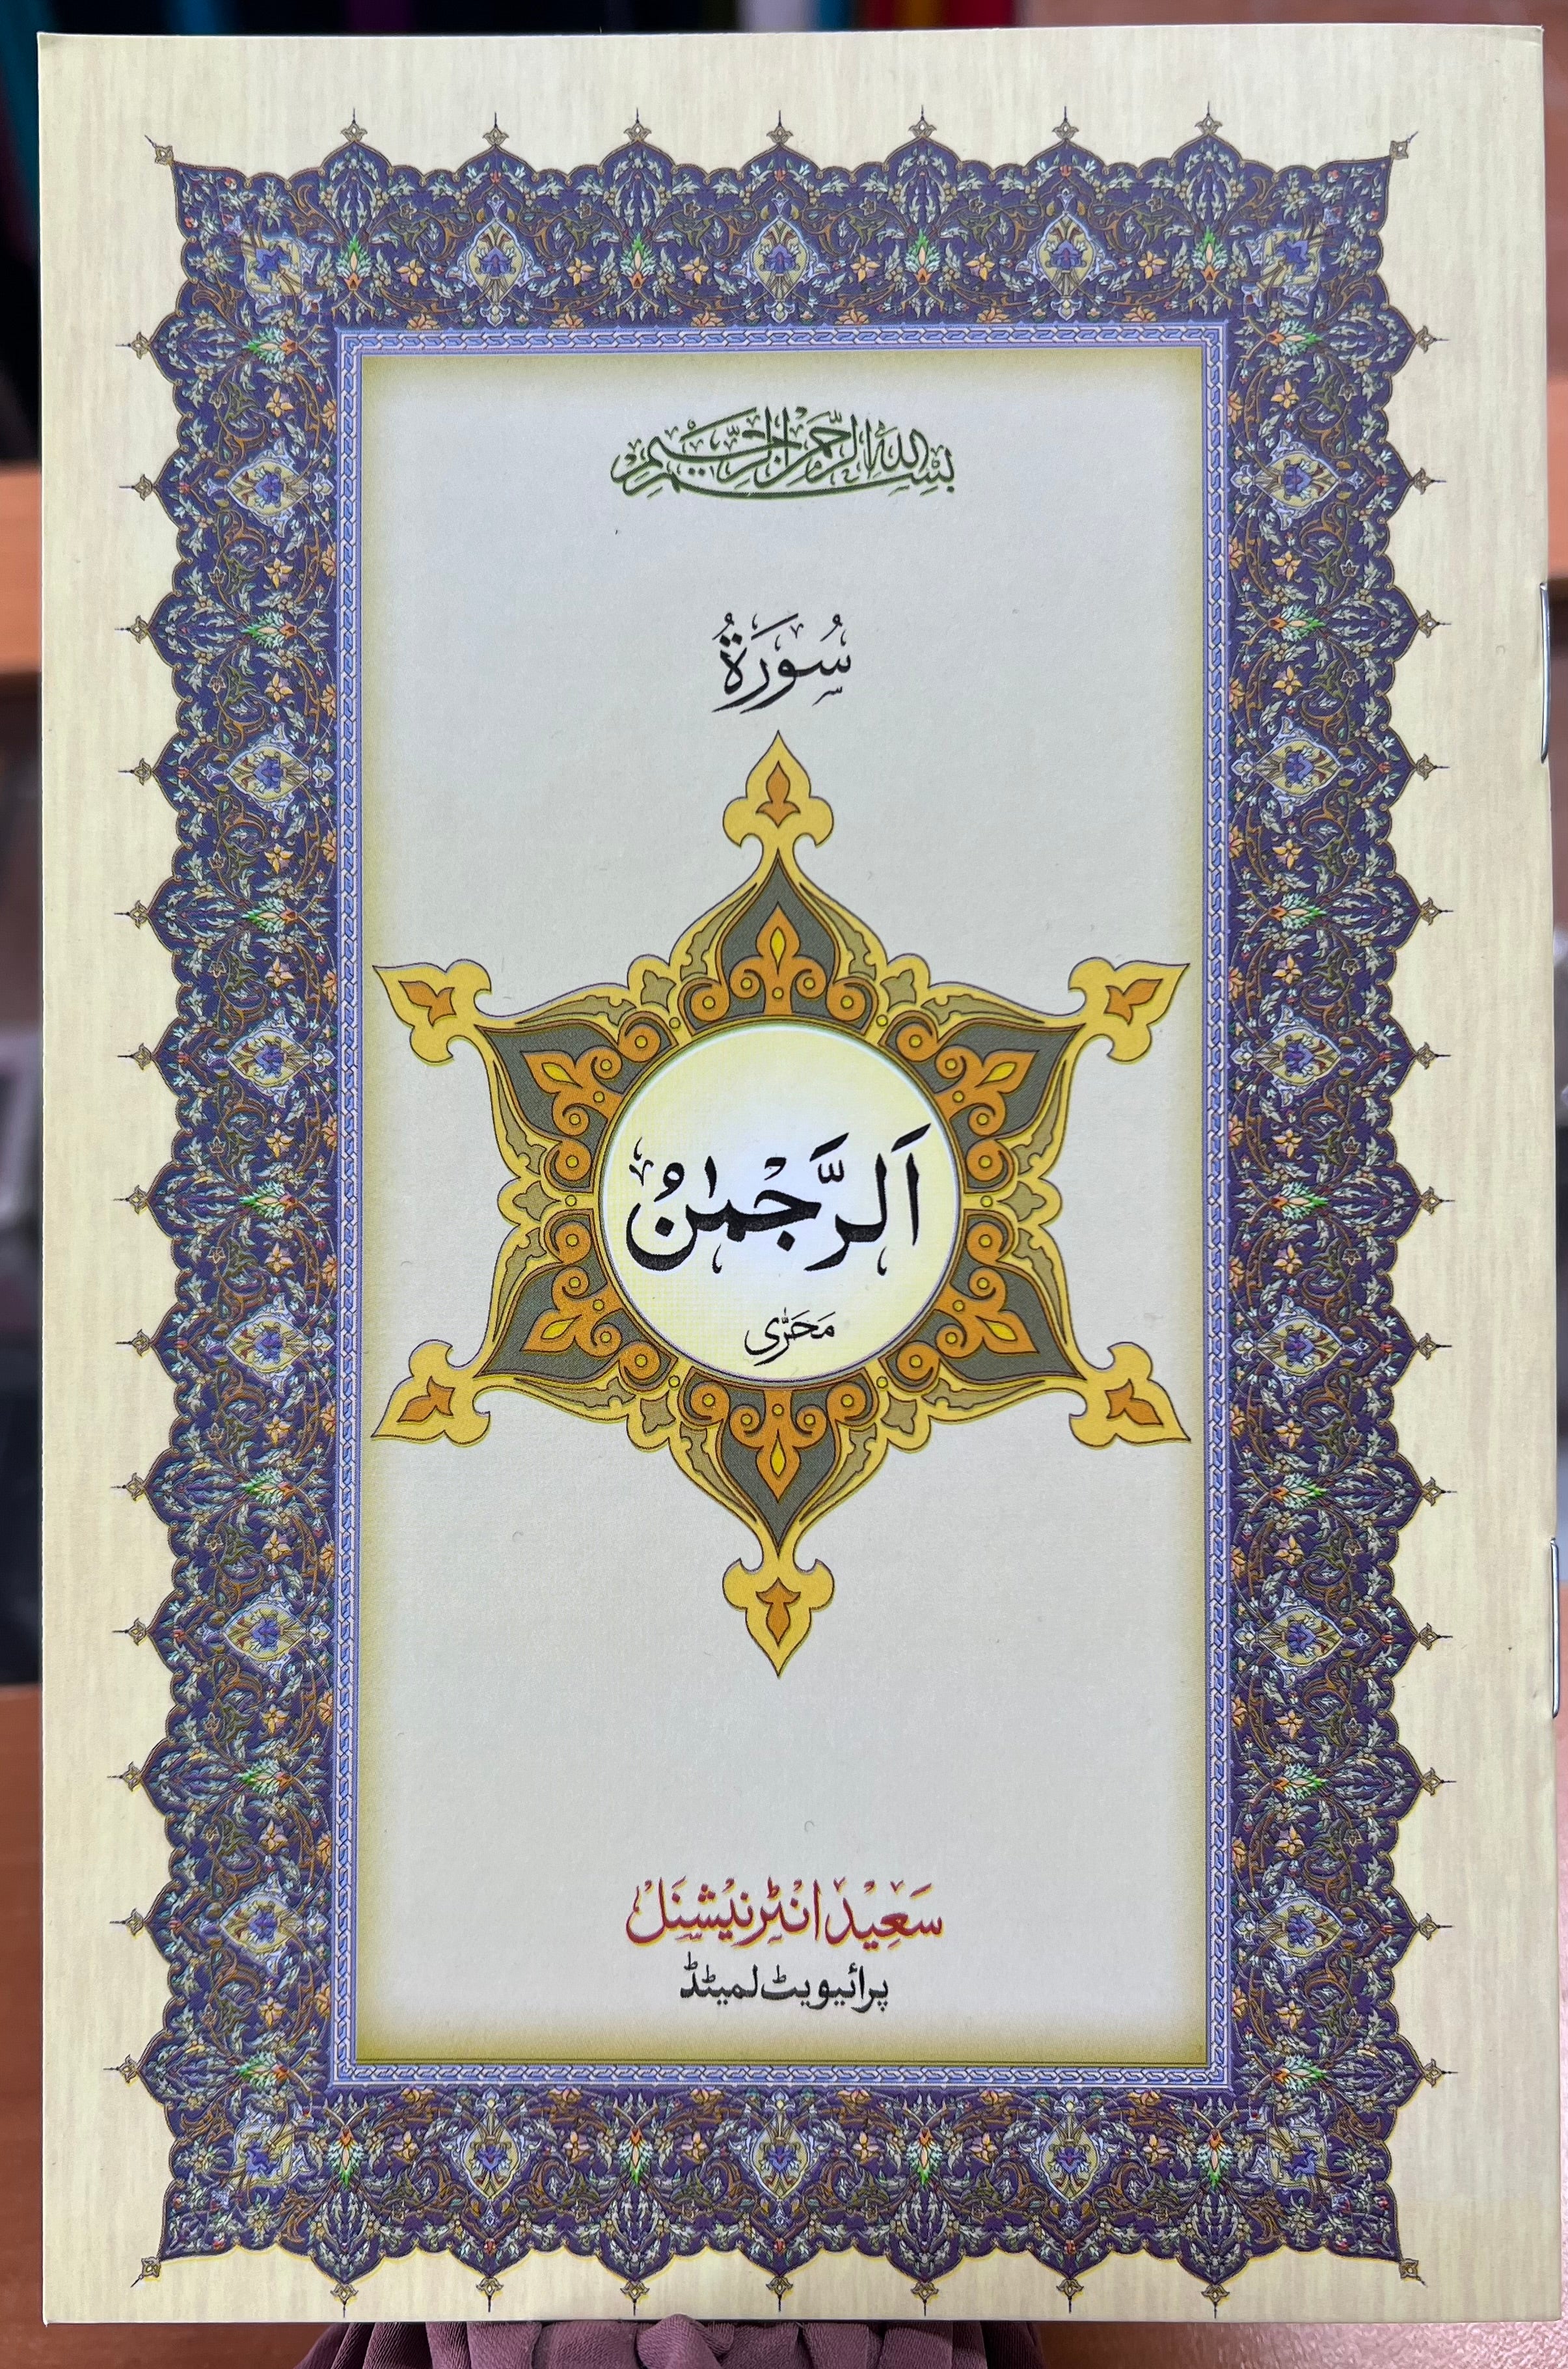 بسم الله الرحمن الرحيم
سُورَةُ
اَلرَّحْمٰنُ
سَعِيْد انٹرنیشنل
پرائیویٹ لمیٹڈ